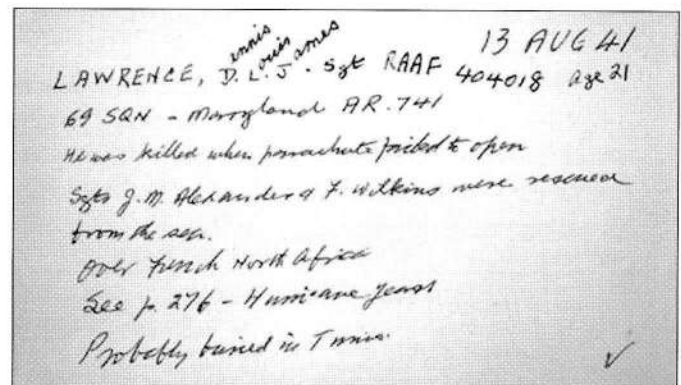 13 AUG 41
ennis ouis ames
LAWRENCE, D. L. J. Sgt RAAF 404018 age 21
69 SQN - Maryland AR.741
He was killed when parachute failed to open
Sgts J.M. Alexander & F. Wilkins were rescued
from the sea.
Over French North Africa
See p. 276 - Hurricane Years
Probably buried in Tunis.
✓